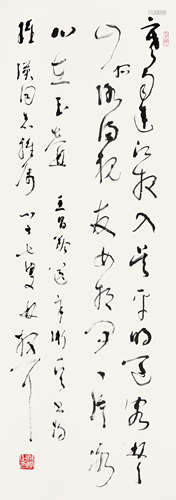 寒雨连江夜入吴平明送客楚
山孤洛阳亲友如相问一片冰
心在玉壶 王昌龄送辛渐 书为
同志雅属 八十七叟林散耳